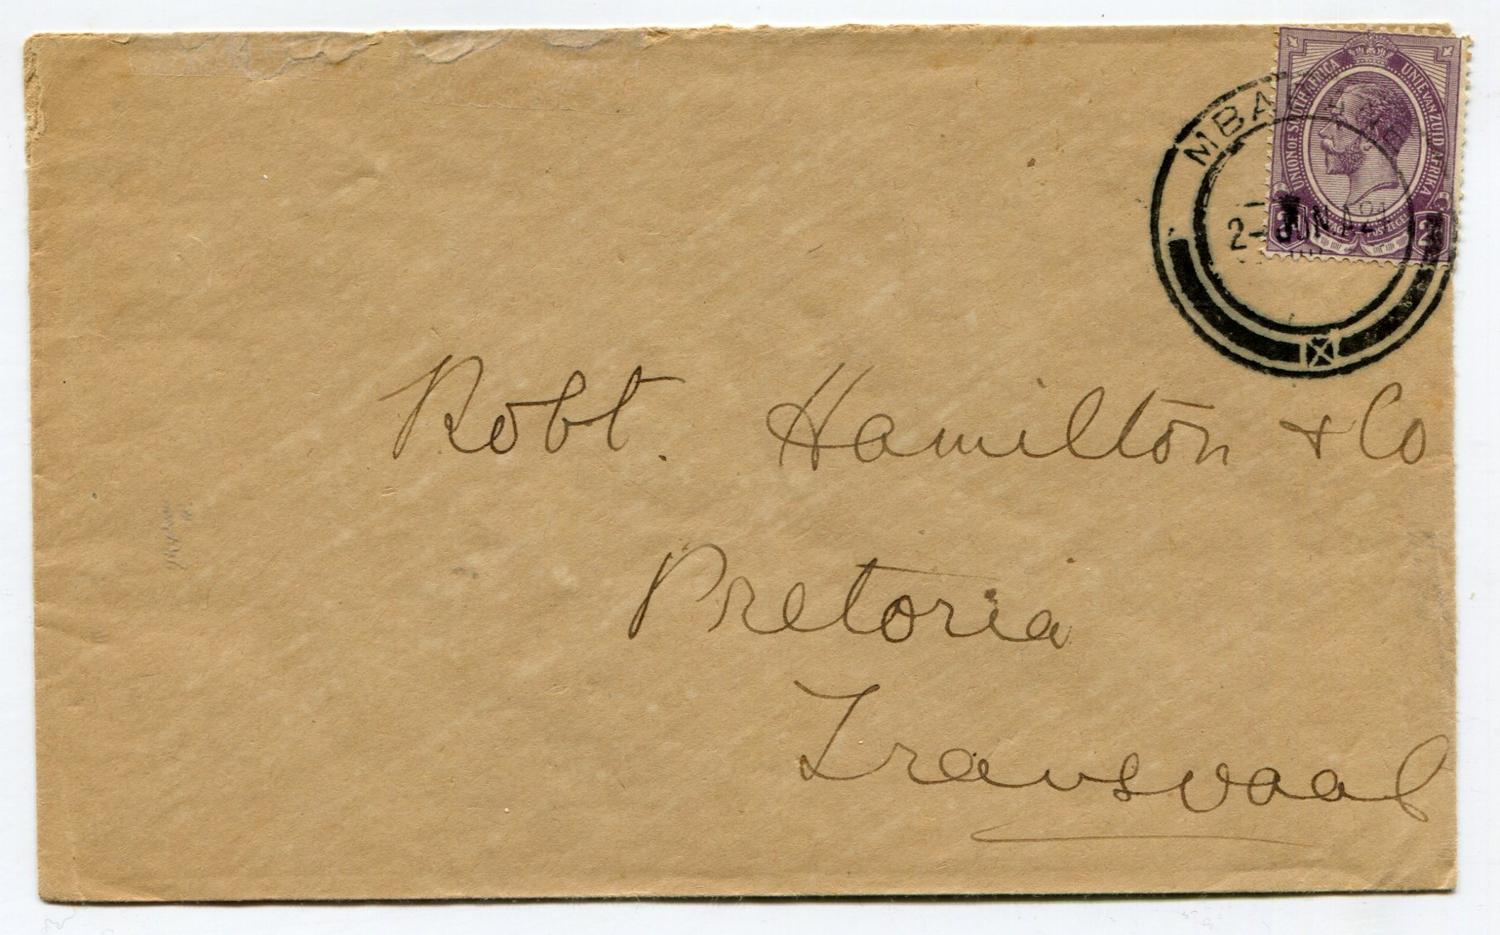 UNION OF SOUTH AFRICA UNIE VAN ZUID AFRIKA
2 2
2 JUN
Robt. Hamilton & Co
Pretoria
Transvaal